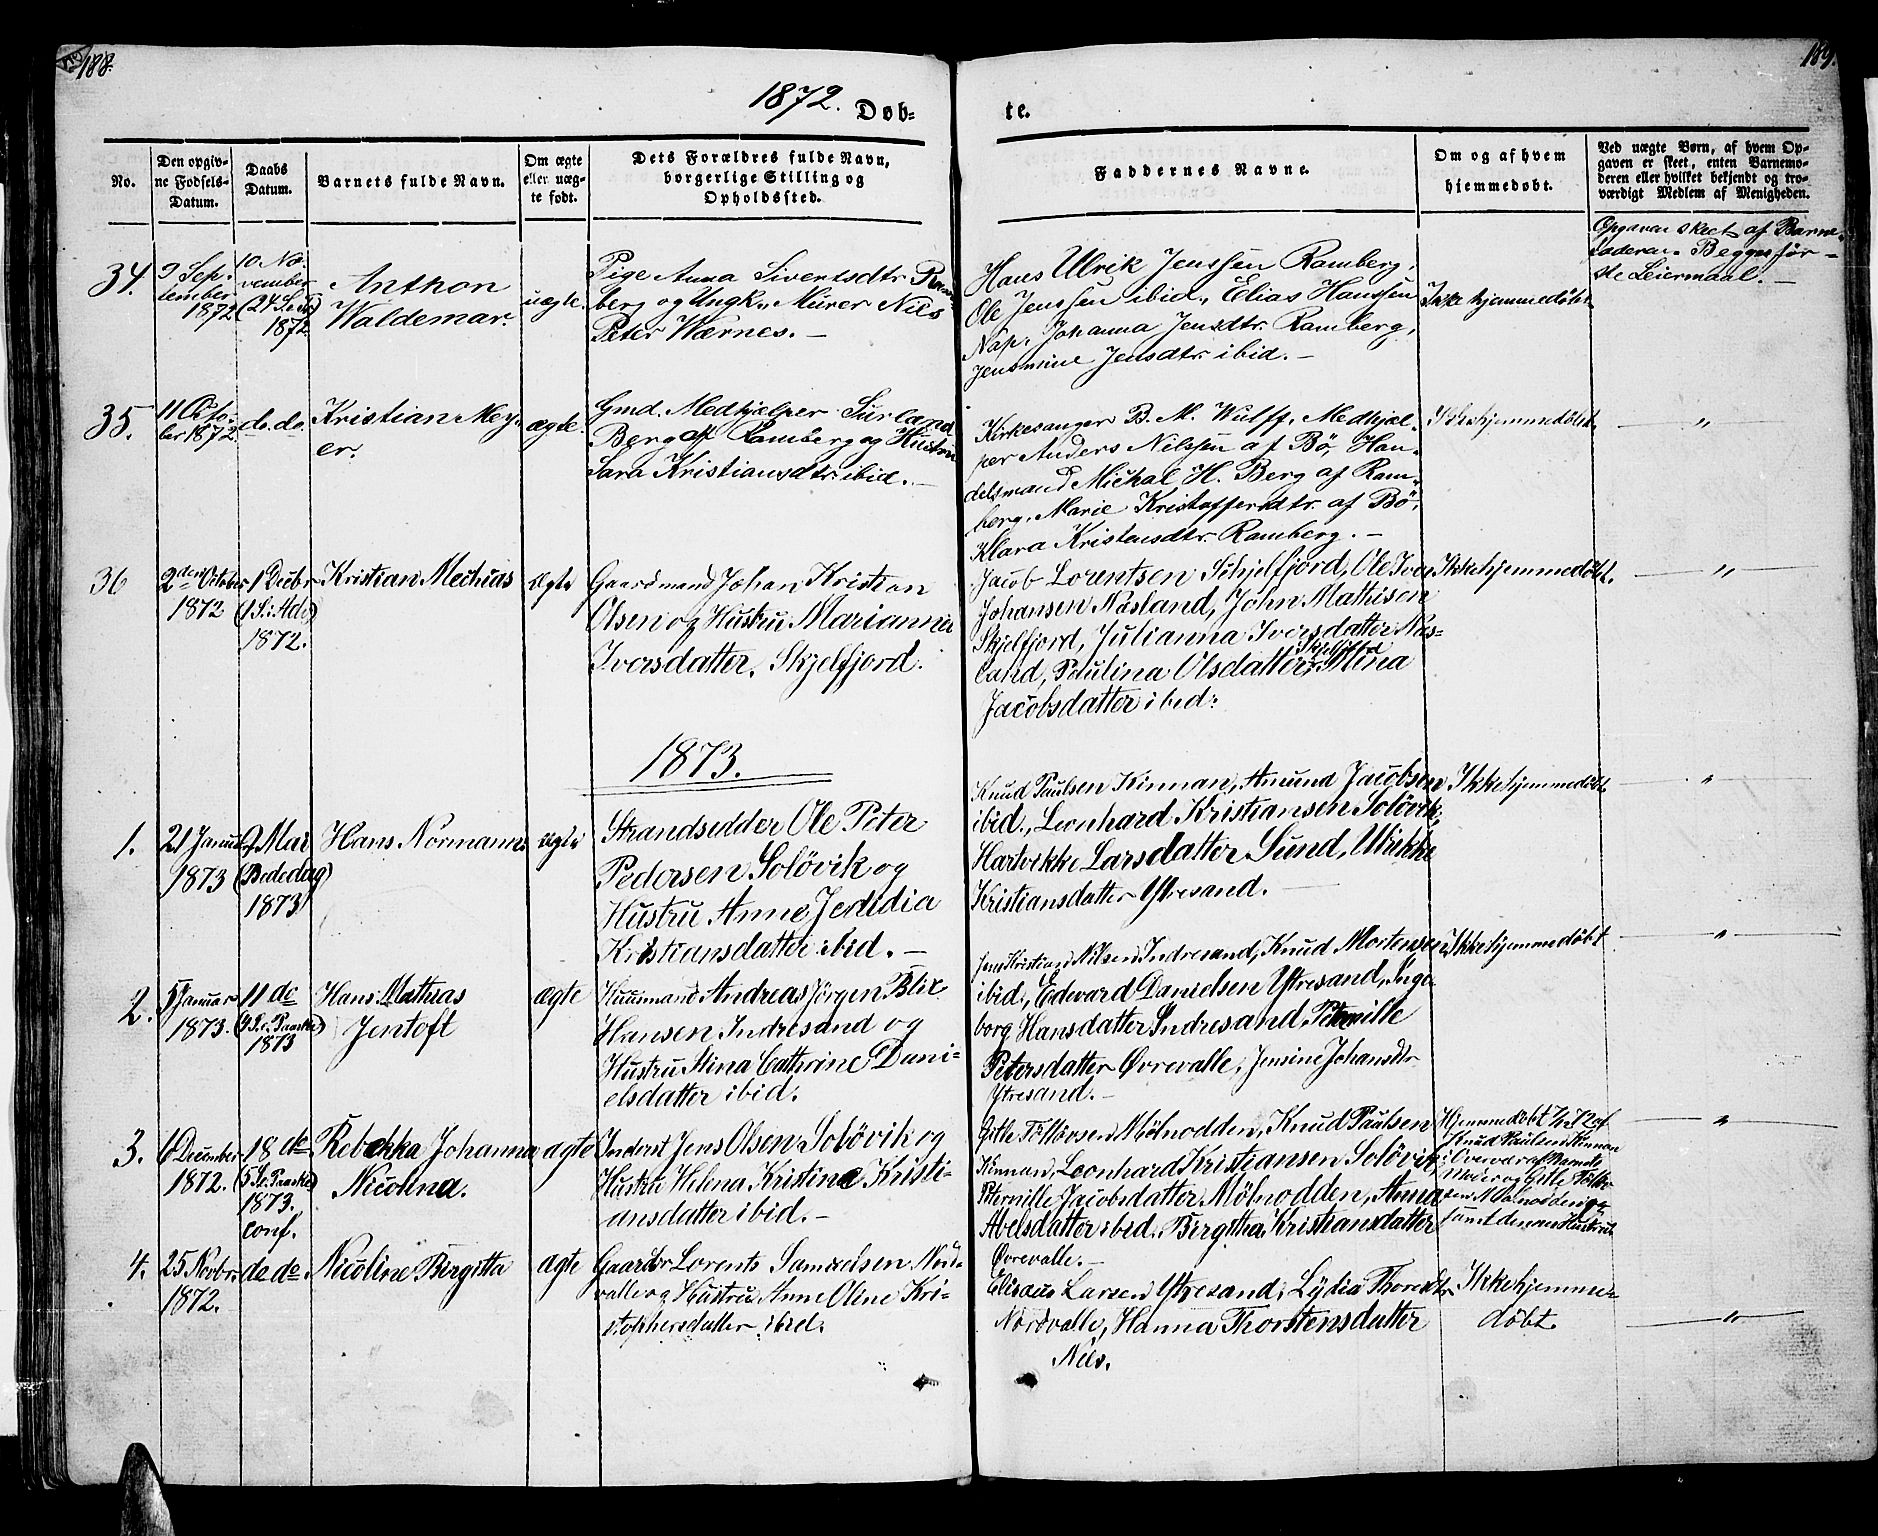 188.
189.
1872.
Døb-
te.
No.
Den opgiv-
ne Fødsels-
Datum.
Daabs
Datum.
Barnets fulde Navn.
Om ægte
eller uæg-
te født.
Dets Forældres fulde Navn,
borgerlige Stilling og
Opholdssted.
Faddernes Navne.
Om og af hvem
hjemmedøbt.
Ved uægte Børn, af hvem Op-
gaven er skeet, enten Barnemo-
deren eller hvilket bekjendt og tro-
værdigt Medlem af Menigheden.
34.
9 Sep-
tember
1872
10 No-
vember
1872
Anthon
Waldemar.
uægte.
Pige Anna Sivertsdtr. Ram-
berg og Ungk. Murer Nils
Peter Wærnes. —
Hans Ulrik Jenssen Ramberg,
Ole Jenssen ibid., Elias Hanssen
Nap, Johanna Jensdtr. Ramberg,
Jensmine Jensdtr. ibid. —
Ikke hjemmedøbt.
Opgaven skeet af Barne-
faderen. Begges før-
ste Leiermaal. —
35.
11 Octo-
ber 1872
do. do.
Kristian Mey-
er.
ægte.
Gmd. Medhjælper
Berg af Ramberg og Hustru
Sara Kristiansdtr. ibid. —
Kirkesanger B. M. Wulff, Medhjæl-
per Anders Nilssen af Bø, Han-
delsmand Michal H. Berg af Ram-
berg, Marie Kristoffersdtr. af Bø,
Klara Kristensdtr. Ramberg. —
Ikke hjemmedøbt.
"
36
2den October
1872
1 Decbr
(1 S. i Adv.)
1872.
Kristian Mechias
ægte
Gaardmand Johan Kristian
Olsen og Hustru Marianna
Iversdatter, Skjelfjord.
Jacob Lorentsen Skjelfjord, Ole Iver
Johansen Nusland, John Mathisen
Skjelfjord, Julianna Iversdatter Nus-
land, Paulina Olsdatter Skjelfjord, Stina
Jacobsdatter ibid:
Ikke hjemmedøbt.
"
1873.
1.
21 Januar
1873
9 Mai
(Bededag)
1873
Hans Normann
ægte
Strandsidder Ole Peter
Pedersen Soløvik og
Hustru Anne Jedidia
Kristiansdatter ibid. —
Knud Paulsen Kinnan, Amund Jacobsen
ibid., Leonhard Kristiansen Soløvik,
Hartvikke Larsdatter Sund, Ulrikke
Kristiansdatter Ytresand. —
Ikke hjemmedøbt
"
2.
5 Januar
1873.
11 de
(4 S. e. Paaske)
1873
Hans Mathias
Jentoft
ægte
Huusmand Andreas Jørgen Blix
Hansen Indresand og
Hustru Stina Cathrine Dani-
elsdatter ibid.
Jens Kristian Nilsen Indresand, Knud Mortensen
ibid., Edevard Danielsen Ytresand, Inge-
borg Hansdatter Indresand, Peternille
Petersdatter Øvrevalle, Jensine Johansdtr
Ytresand. —
Ikke hjemmedøbt
"
3.
6 December
1872.
18 de
(5 S. e. Paaske)
1873.
conf.
Rebekka Johanna
Nicolina.
ægte
Inderst Jens Olsen Soløvik og
Hustru Helena Kristine Kristi-
ansdatter ibid. —
Gitle Tollevsen Mølnodden, Knud Paulsen
Kinnan, Leonhard Kristiansen Soløvik,
Peternille Jacobsdatter Mølnodden, Anna
Abelsdatter ibid. Birgitha Kristiansdatter
Øvrevalle. —
Hjemmedøbt af
Knud Paulsen Kinnan
i Overvær af Barnets
Moder og Gitle
Mølnodden
samt dennes Hustru
"
4.
25 Novbr.
1872.
do do.
Nicoline Birgitta
ægte
Gaardbr Lorents Samuelsen Nord-
valle og Hustru Anne Oline Kri-
stophersdatter ibid.
Elisæus Larsen Ytresand, Lydia Thoresdtr.
Nordvalle, Hanna Thorstensdatter
Nils.
Ikke hjemme-
døbt.
"